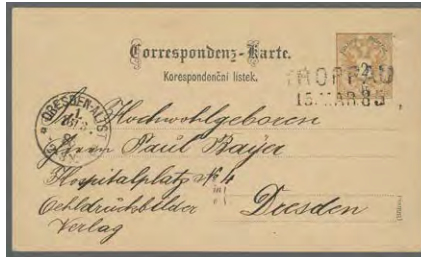 Correspondenz-Karte.
Korespondenční lístek.
2
TROPPAU
15.MAR.85
DRESDEN-ALTST
Hochwohlgeboren
Herrn Paul Bayer
Hospitalplatz No 4
Oehldruckbilder
Verlag
Dresden